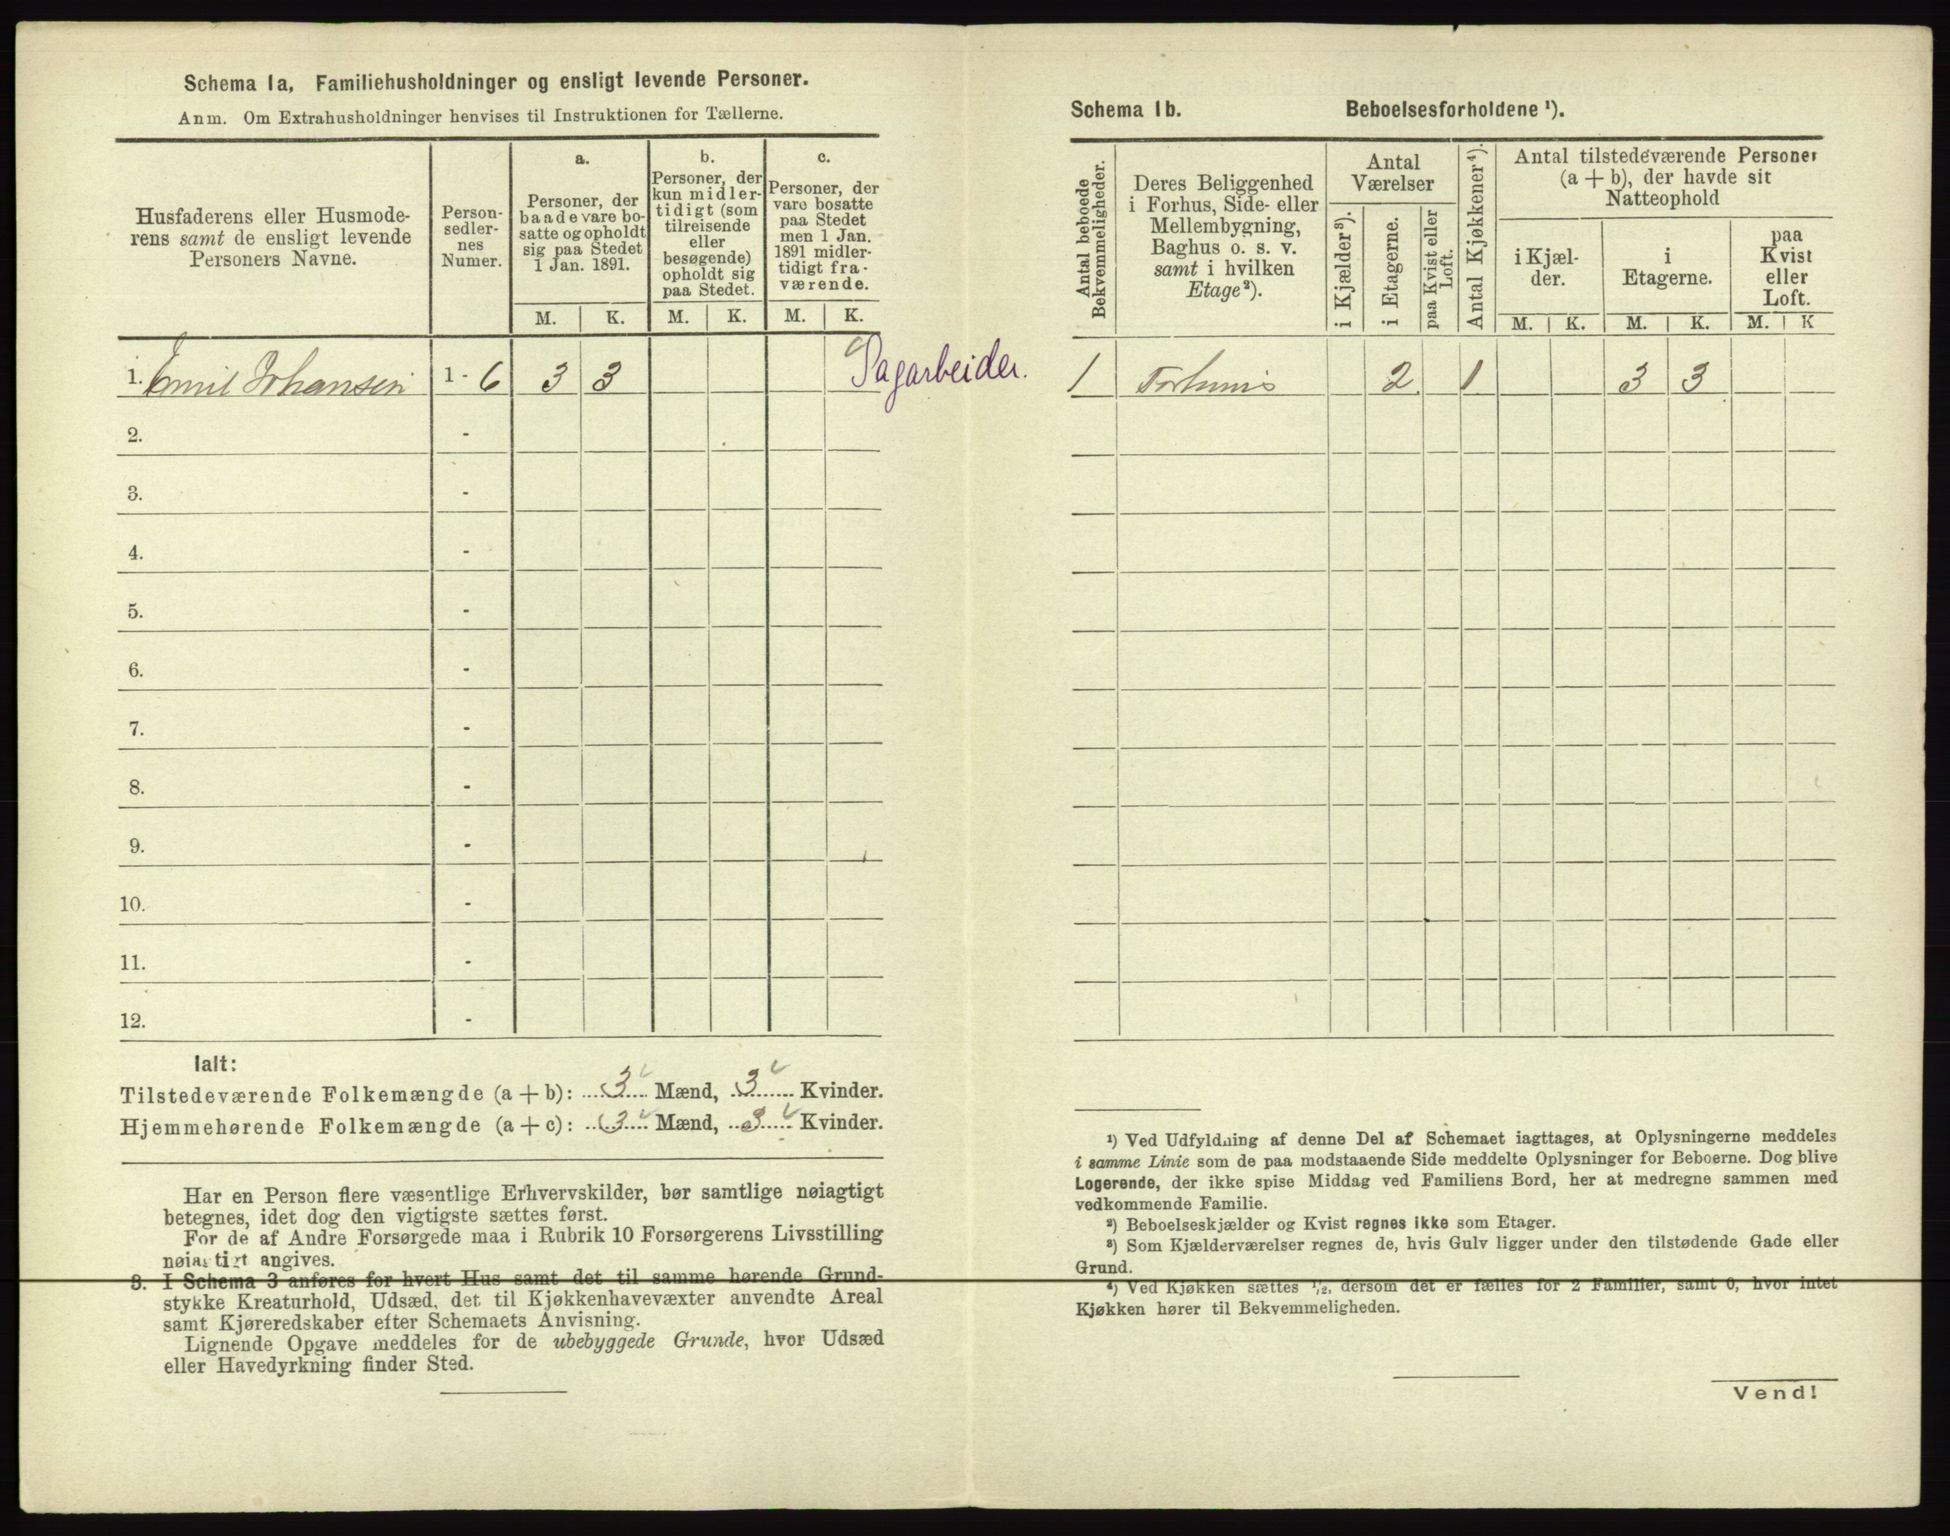 Schema 1a, Familiehusholdninger og ensligt levende Personer.
Anm. Om Extrahusholdninger henvises til Instruktionen for Tællerne.
Husfaderens eller Husmode-
rens samt de ensligt levende
Personers Navne.
Person-
sedler-
nes
Numer.
a.
Personer, der
baade vare bo-
satte og opholdt
sig paa Stedet
1 Jan. 1891.
b.
Personer, der
kun midler-
tidigt (som
tilreisende
eller
besøgende)
opholdt sig
paa Stedet.
c.
Personer, der
vare bosatte
paa Stedet
men 1 Jan.
1891 midler-
tidigt fra-
værende.
M. K. M. K. M. K.
1. Emil Johansen 1 - 6 3 3 Dagarbeider.
2. -
3. -
4. -
5. -
6. -
7. -
8. -
9. -
10. -
11. -
12. -
Ialt:
Tilstedeværende Folkemængde (a + b): 3 Mænd, 3 Kvinder.
Hjemmehørende Folkemængde (a + c): 3 Mænd, 3 Kvinder.
Har en Person flere væsentlige Erhvervskilder, bør samtlige nøiagtigt
betegnes, idet dog den vigtigste sættes først.
For de af Andre Forsørgede maa i Rubrik 10 Forsørgerens Livsstilling
nøiagtigt angives.
3. I Schema 3 anføres for hvert Hus samt det til samme hørende Grund-
stykke Kreaturhold, Udsæd, det til Kjøkkenhavevæxter anvendte Areal
samt Kjøreredskaber efter Schemaets Anvisning.
Lignende Opgave meddeles for de ubebyggede Grunde, hvor Udsæd
eller Havedyrkning finder Sted.
Schema 1b. Beboelsesforholdene ¹).
Antal beboede
Bekvemmeligheder.
Deres Beliggenhed
i Forhus, Side- eller
Mellembygning,
Baghus o. s. v.
samt i hvilken
Etage²).
Antal
Værelser
i Kjælder³).
i Etagerne.
paa Kvist eller
Loft.
Antal Kjøkkener⁴).
Antal tilstedeværende Personer
(a + b), der havde sit
Natteophold
i Kjæl-
der.
i
Etagerne.
paa
Kvist
eller
Loft.
M. K. M. K. M. K
1 Forhuus 2 1 3 3
¹) Ved Udfyldning af denne Del af Schemaet iagttages, at Oplysningerne meddeles
i samme Linie som de paa modstaaende Side meddelte Oplysninger for Beboerne. Dog blive
Logerende, der ikke spise Middag ved Familiens Bord, her at medregne sammen med
vedkommende Familie.
²) Beboelseskjælder og Kvist regnes ikke som Etager.
³) Som Kjælderværelser regnes de, hvis Gulv ligger under den tilstødende Gade eller
Grund.
⁴) Ved Kjøkken sættes ¹/₂, dersom det er fælles for 2 Familier, samt 0, hvor intet
Kjøkken hører til Bekvemmeligheden.
Vend!